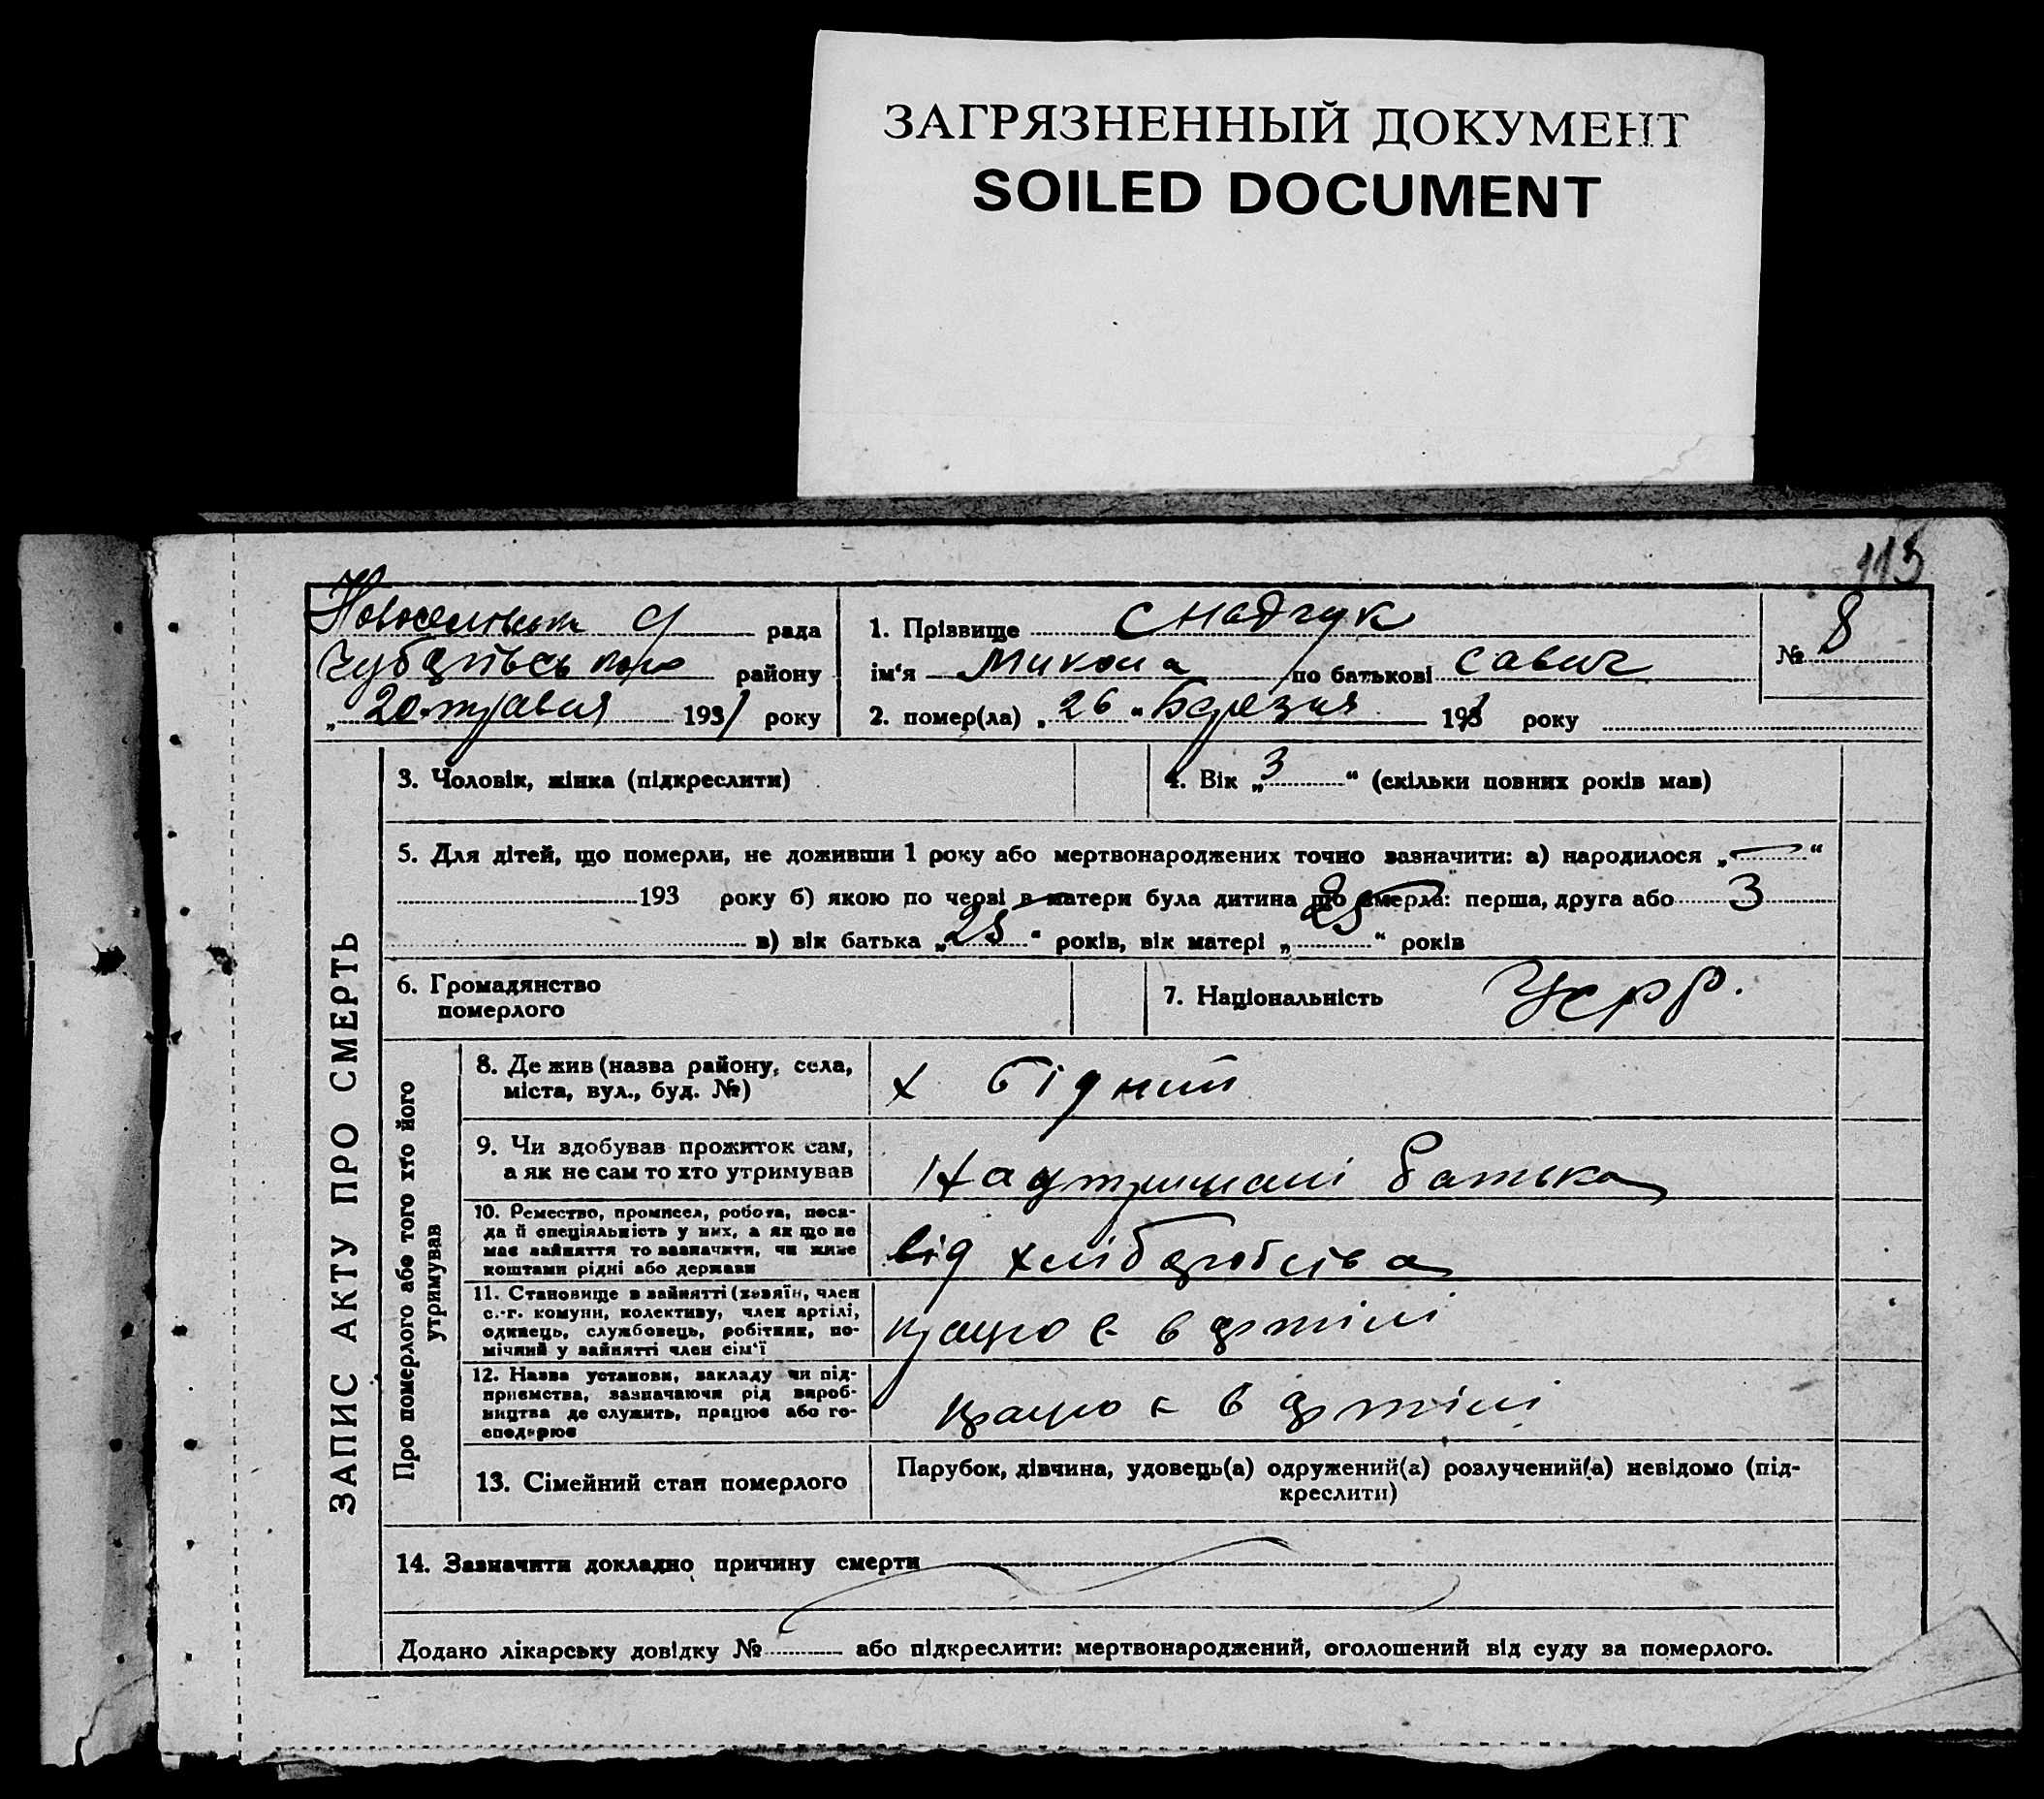 ЗАГРЯЗНЕННЫЙ ДОКУМЕНТ
SOILED DOCUMENT
113
рада
району
„ 20 травня 1931 року
1. Прізвище Снадчук
ім'я Микола по батькові Савич
2. помер(ла) „ 26 " Березня 1931 року
№ 8
ЗАПИС АКТУ ПРО СМЕРТЬ
3. Чоловік, жінка (підкреслити)
4. Вік „ 3 " (скільки повних років мав)
5. Для дітей, що померли, не доживши 1 року або мертвонароджених точно зазначити: а) народилося „ — "
193 року б) якою по черві в матери була дитина що вмерла: перша, друга або 3
в) вік батька „ 25 " років, вік матері „ 25 " років
6. Громадянство
померлого
7. Національність Усрр.
Про померлого або того хто його
утримував
8. Де жив (назва району, села,
міста, вул., буд. №)
х бідний
9. Чи здобував прожиток сам,
а як не сам то хто утримував
На утриманні батька
10. Ремество, промисел, робота, поса-
да й спеціяльність у них, а як що не
має зайняття то зазначити, чи живе
коштами рідні або держави
від хліборобства
11. Становище в зайнятті (хазяїн, член
с.-г. комуни, колективу, член артілі,
одинець, службовець, робітник, по-
мічний у зайнятті член сім'ї
працює в артілі
12. Назва установи, закладу чи під-
приємства, зазначаючи рід вироб-
ництва де служить, працює або го-
сподарює
працює в артілі
13. Сімейний стан померлого
Парубок, дівчина, удовець(а) одружений(а) розлучений(а) невідомо (під-
креслити)
14. Зазначити докладно причину смерти
Додано лікарську довідку № або підкреслити: мертвонароджений, оголошений від суду за померлого.